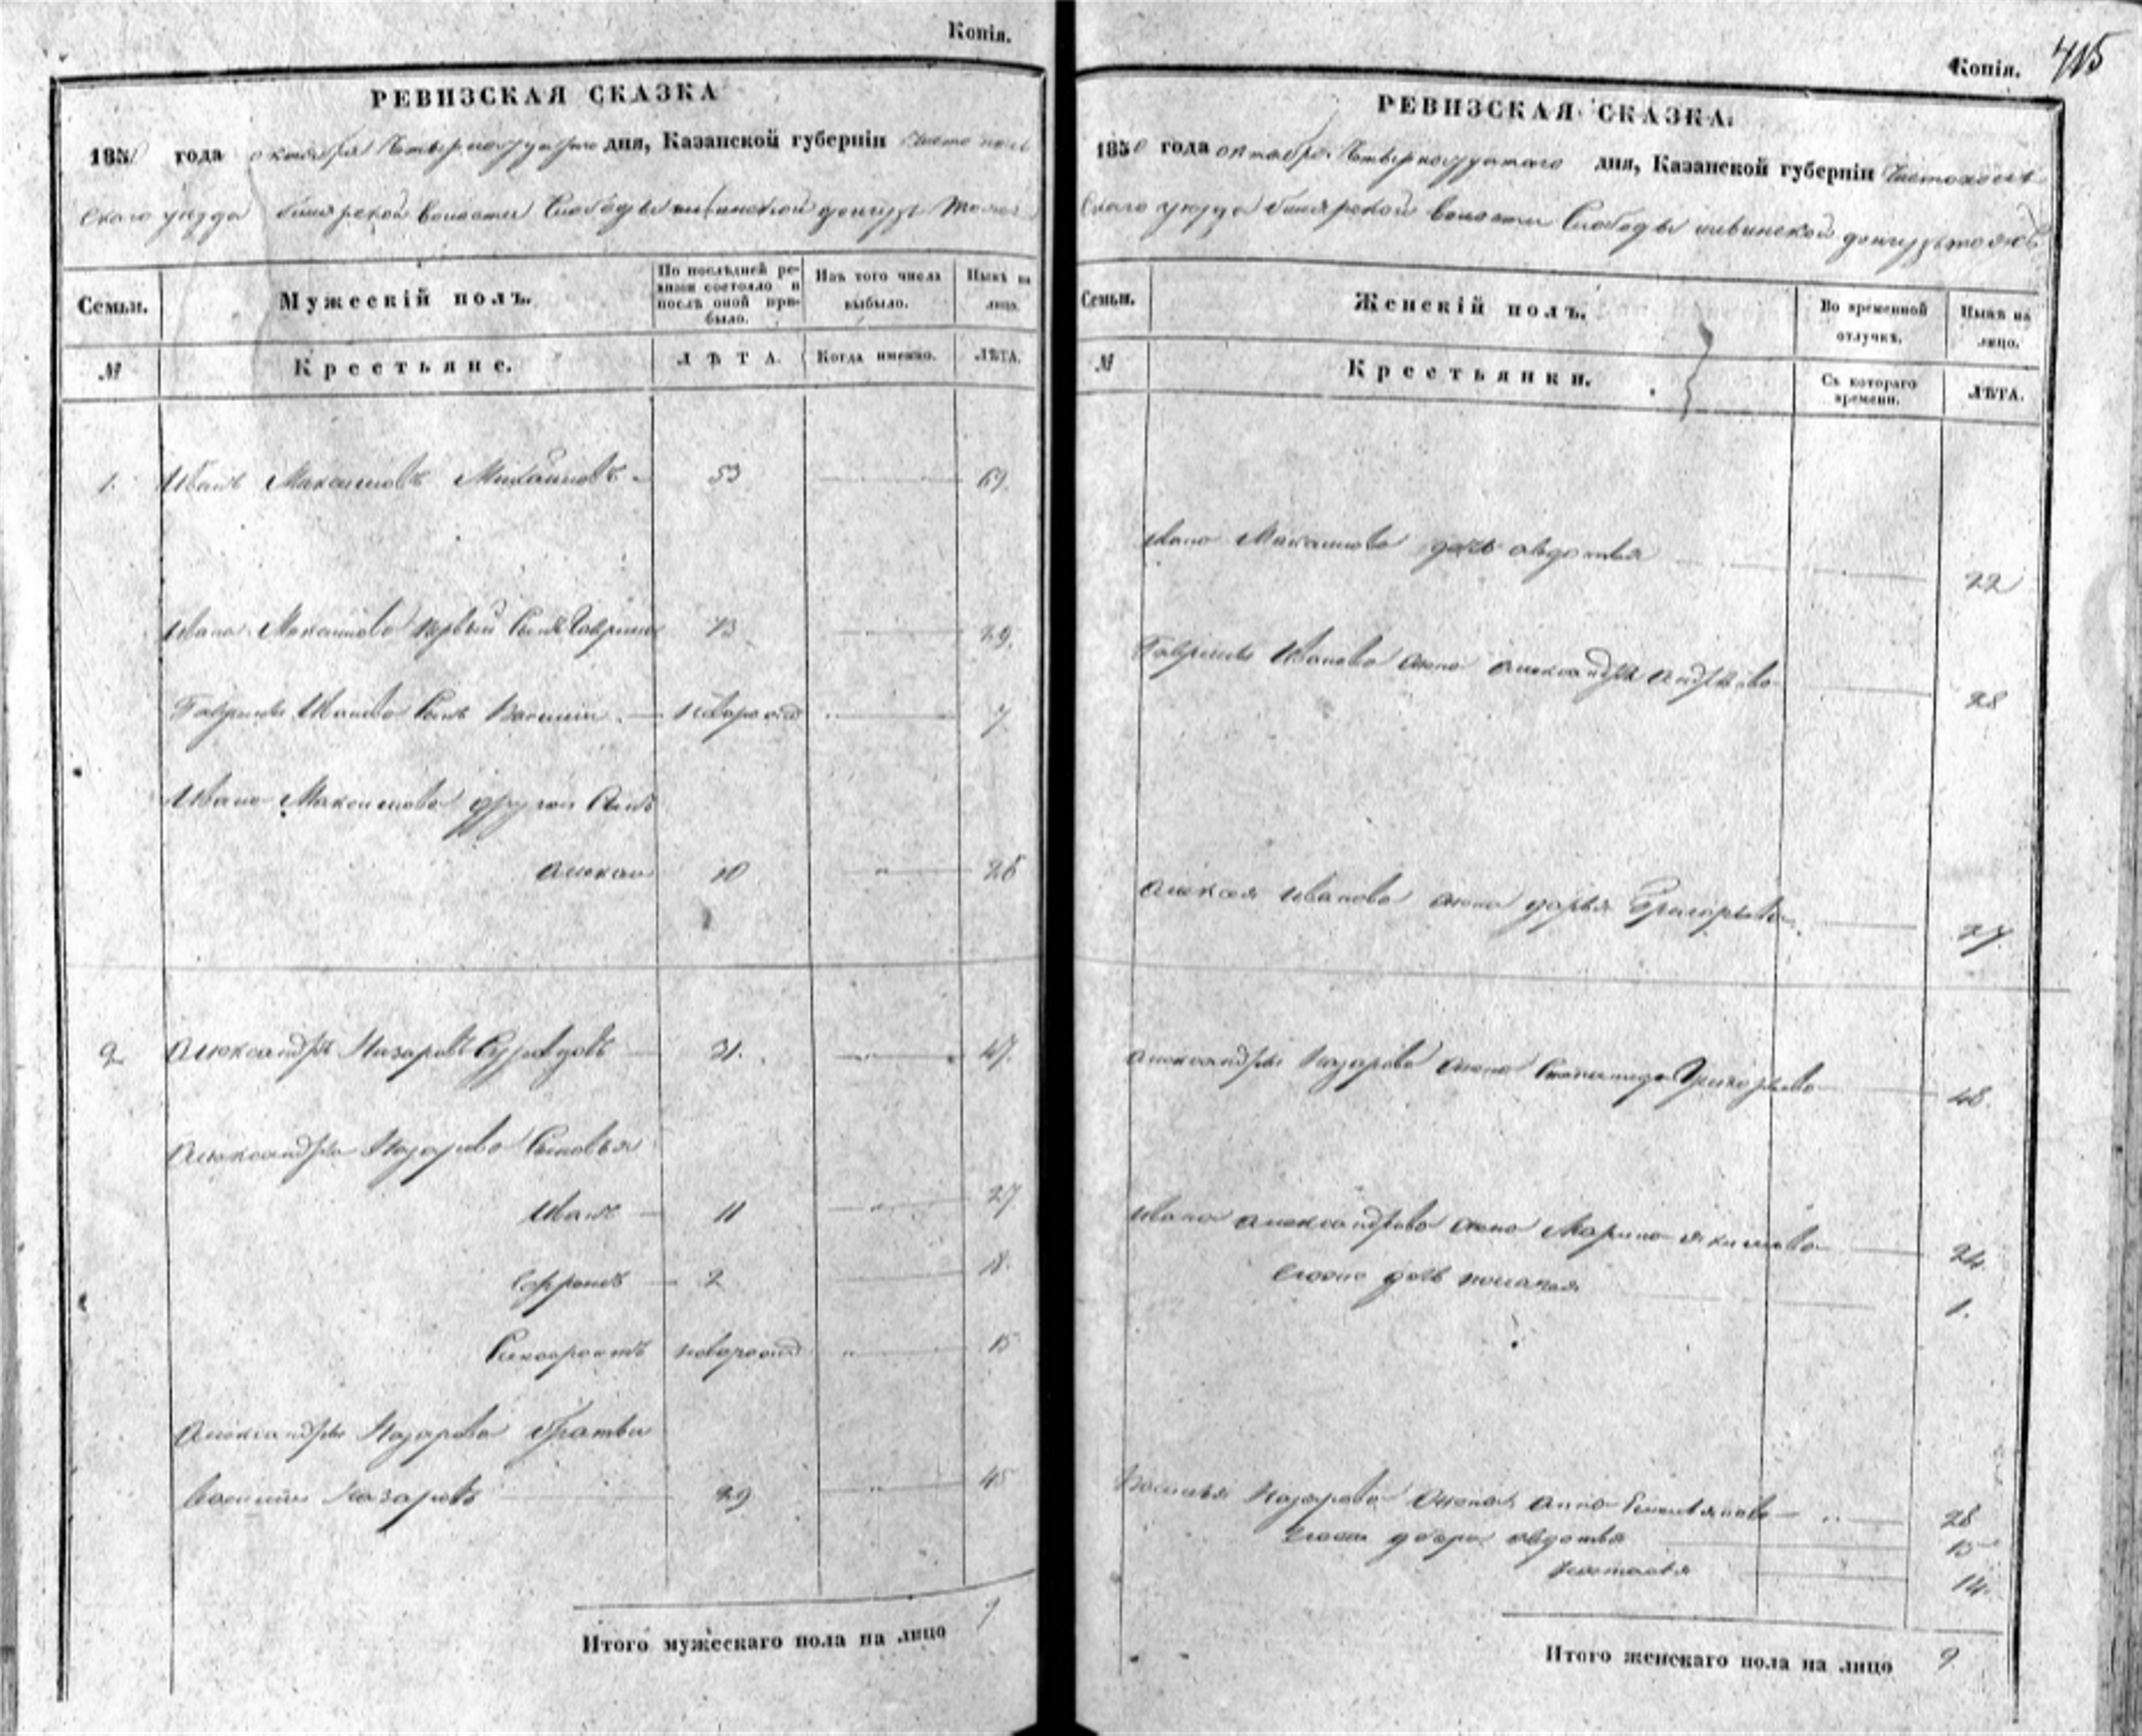 Копія.
РЕВИЗСКАЯ СКАЗКА
1850 года октября Четвернодцатаго дня, Казанской губерніи Чистополь
скаго уезда билярской волости Слободы
Семьи. Мужескій полъ. По послѣдней ревизіи состояло и послѣ оной прибыло. Изъ того числа выбыло. Нынѣ на лицо.
№ Крестьяне. ЛѢТА. Когда именно. ЛѢТА.
1. Иванъ Максимовъ Михайловъ 53 69.
Ивана Максимова первый Сынъ Гаврила 13 29.
Гаврилы Иванова Сынъ Василий новорожд 7
Ивана Максимова другой Сынъ
Алексей 10 26
2 Александръ Назаровъ 31. 47.
Александра Назарова Сыновья
Иванъ 11 27
Софронъ 2 18.
новорожд 15
Александра Назарова братья
Василий Назаровъ 29 45
Итого мужескаго пола на лицо 9
Копія. 415
РЕВИЗСКАЯ СКАЗКА.
1850 года октября Четвернодцатаго дня, Казанской губерніи Чистополь
скаго уезда билярской волости Слободы
Семьи. Женскій полъ. Во временной отлучкѣ. Нынѣ на лицо.
№ Крестьянки. Съ котораго времени. ЛѢТА.
Ивана Максимова дочь авдотья 22
Гаврилы Иванова жена александра андреева 28
Алексея Иванова жена дарья Григорьева 27
Александры Назарова жена Григорьева 48.
Ивана александрова жена Марина якимова 24.
1.
Василья Назарова жена анна Емельянова 28
дочери авдотья 15
наталья 14.
Итого женскаго пола на лицо 9